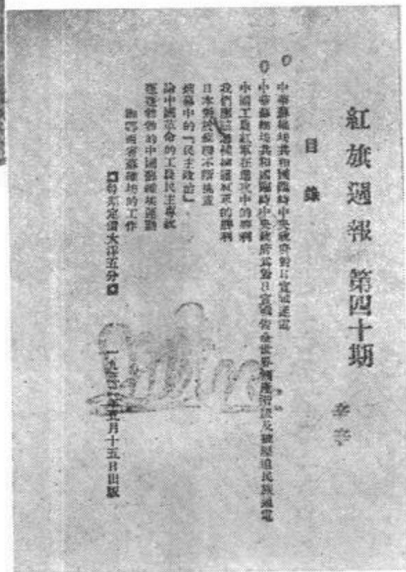 紅旗週報 第四十期
目錄
中華蘇維埃共和國臨時中央政府對日宣戰通電
中華蘇維埃共和國臨時中央政府為對日宣戰告全世界無產階級及被壓迫民族通電
中國工農紅軍在進攻中的勝利
我們應該怎樣擁護紅軍的勝利
日本對於蘇聯不斷挑釁
煙幕中的「民主政治」
論中國革命的工農民主專政
蓬蓬勃勃的中國蘇維埃運動
湘鄂西省蘇維埃的工作
定價大洋五分
一九三二年五月十五日出版